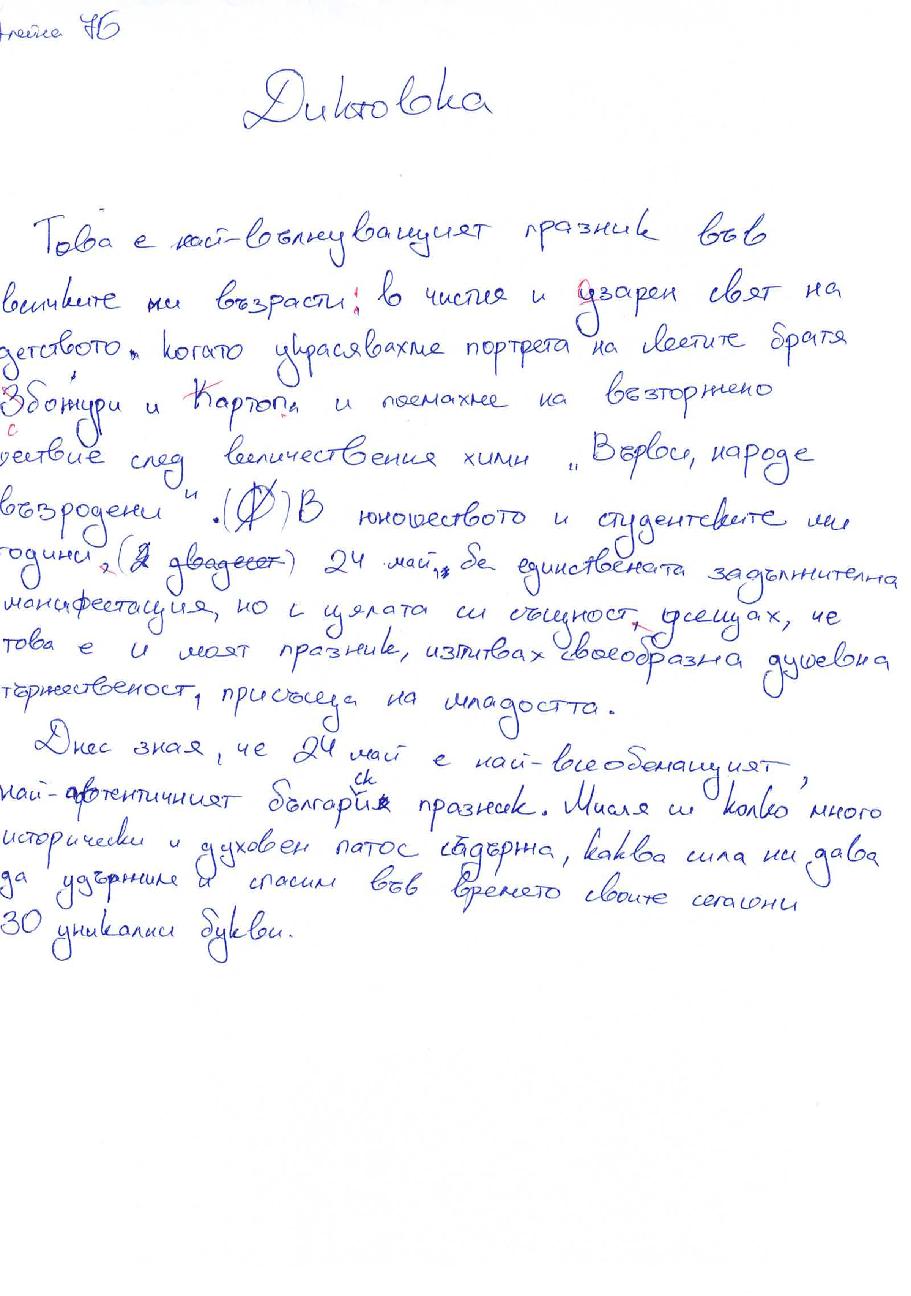 7б
Диктовка
Това е най-вълнуващият празник във
всичките ми възрасти: в чистия и узарен свят на
детството, когато украсявахме портрета на светите братя
Збожури и Картопи и поемахме на възторжено
шествие след величествения химн „Върви, народе
възродени". В юношеството и студентските ми
години, (2 двадесет) 24 май, бе единствената задължителна
манифестация, но с цялата си същност, усещах, че
това е и моят празник, изпитвах своеобразна душевна
тържественост, присъща на младостта.
Днес зная, че 24 май е най-всеобемащият,
най-автентичният български празник. Мисля си колко много
исторически и духовен патос съдържа, каква сила ни дава
да удържим и спасим във времето своите сегашни
30 уникални букви.